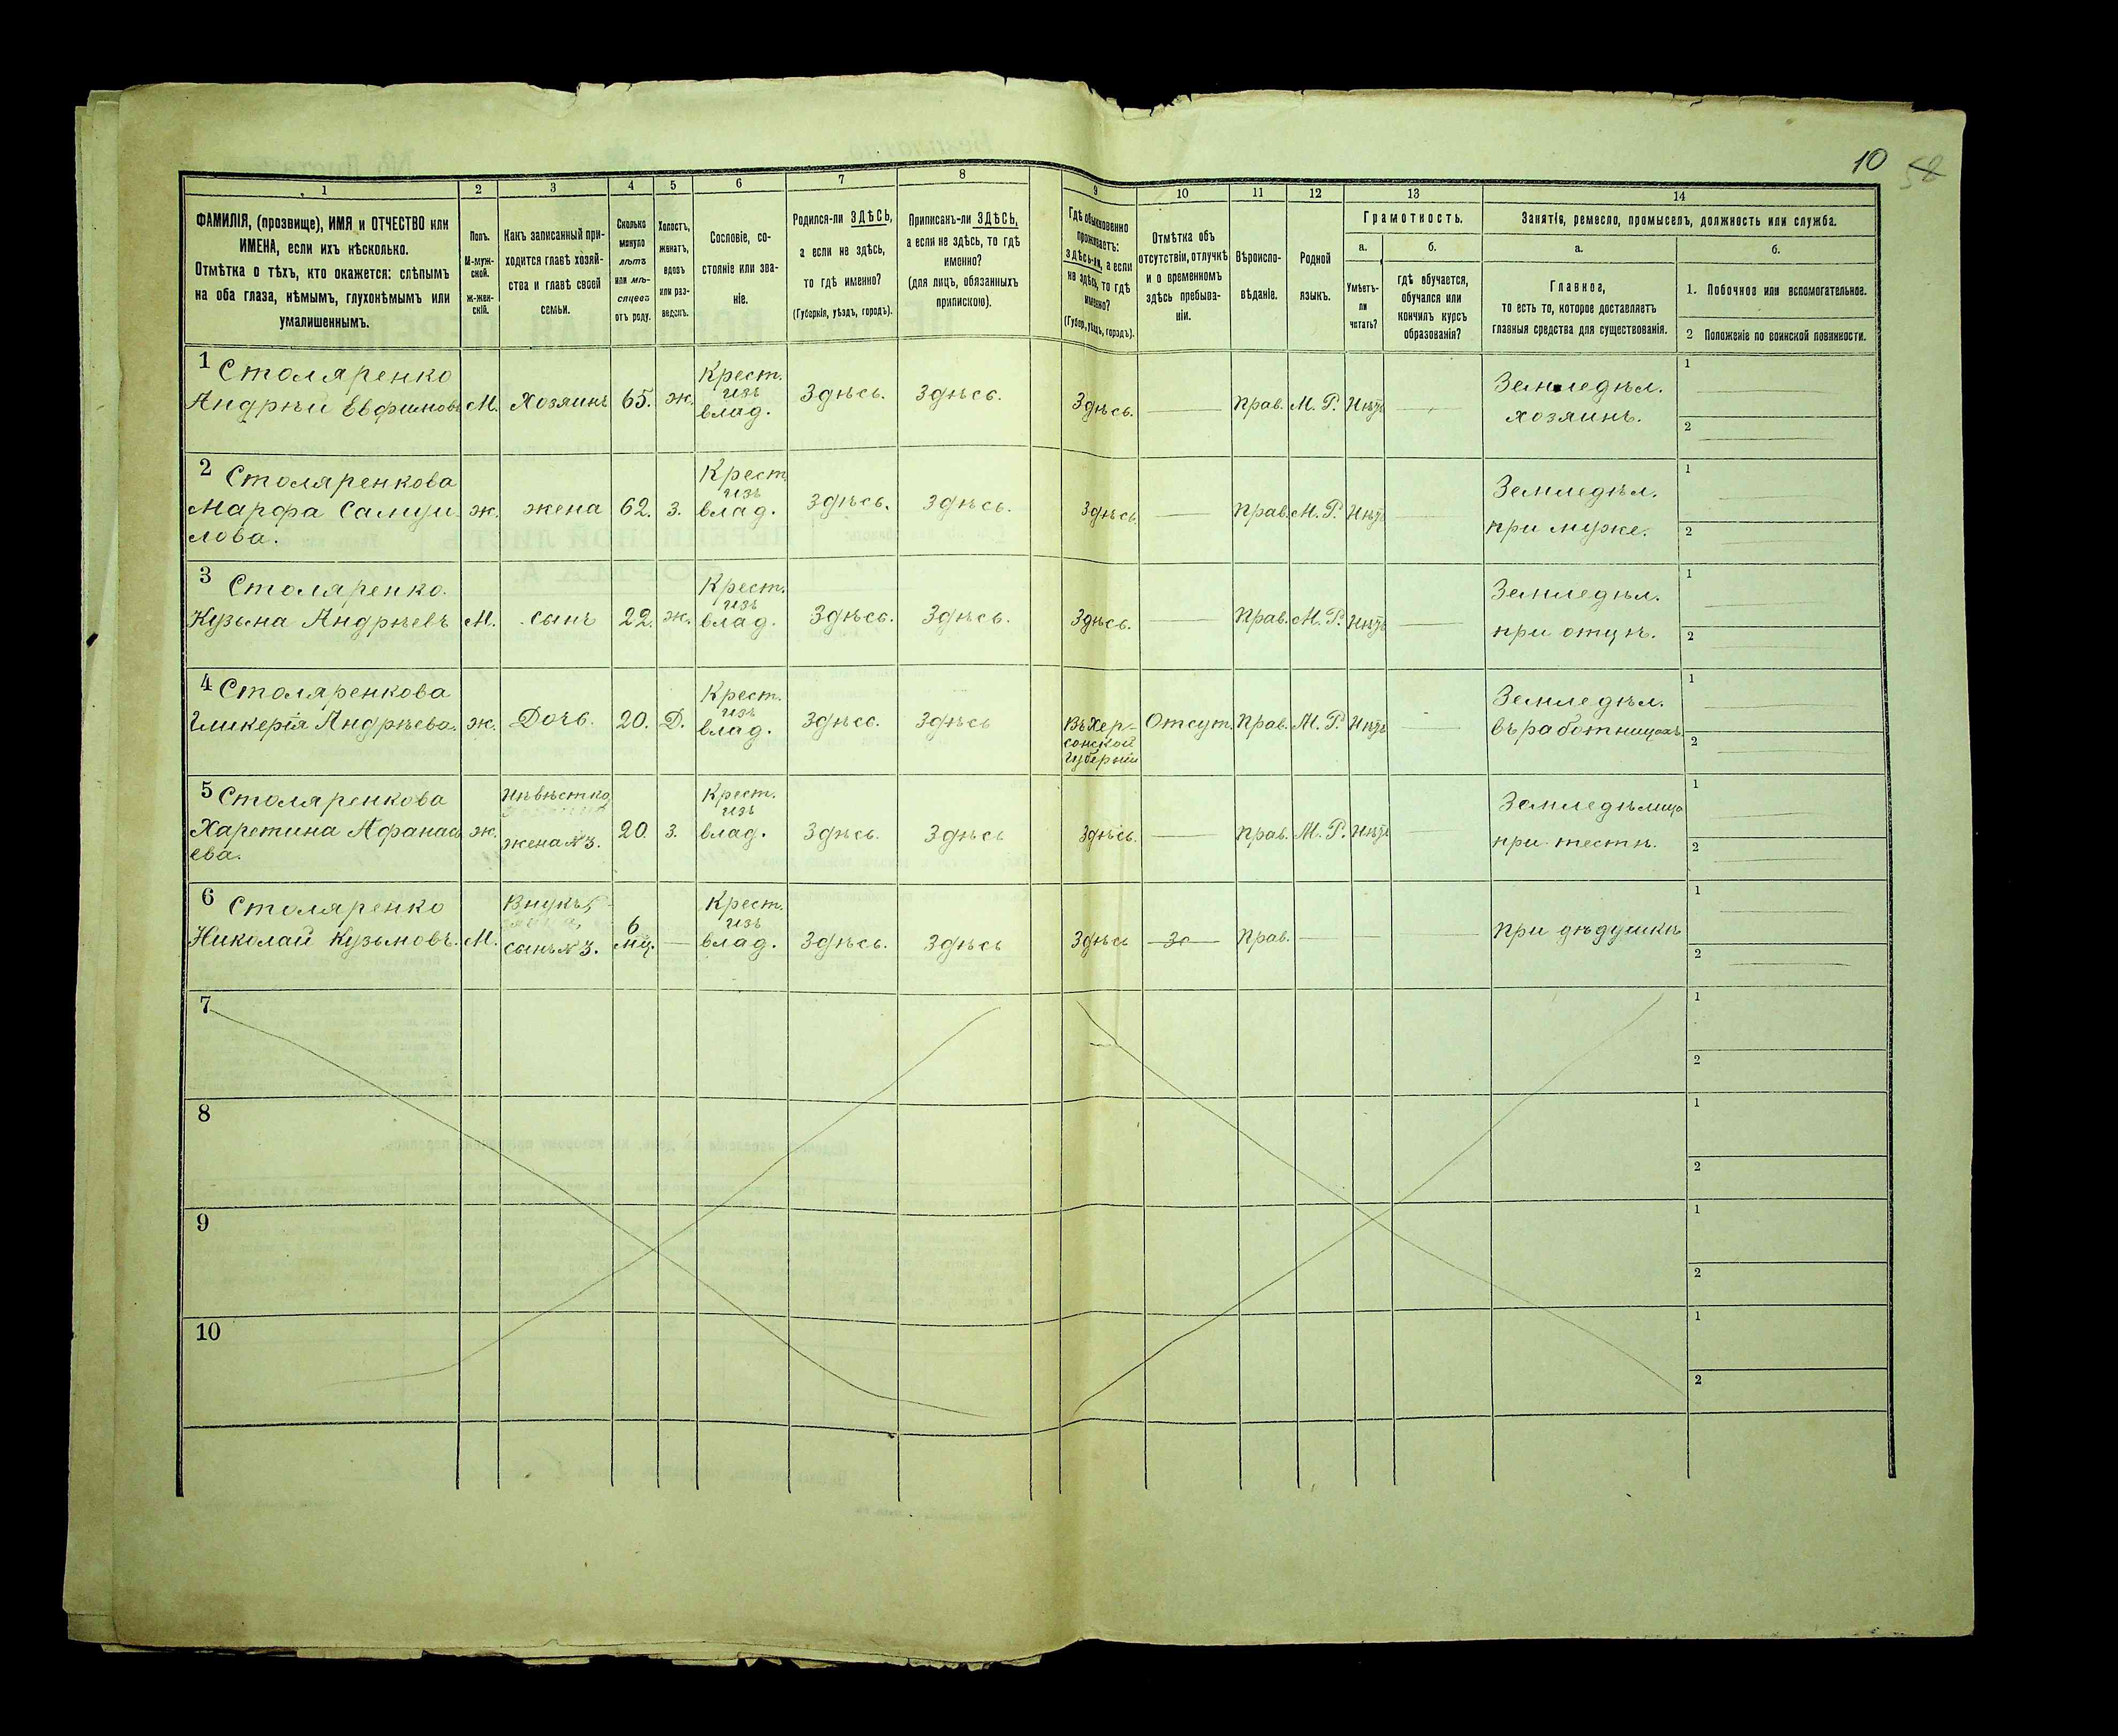 10 58
1 2 3 4 5 6 7 8 9 10 11 12 13 14
ФАМИЛІЯ, (прозвище), ИМЯ и ОТЧЕСТВО или
ИМЕНА, если ихъ нѣсколько.
Отмѣтка о тѣхъ, кто окажется: слѣпымъ
на оба глаза, нѣмымъ, глухонѣмымъ или
умалишеннымъ.
Полъ.
М-муж-
ской.
ж-жен-
скій.
Какъ записанный при-
ходится главѣ хозяй-
ства и главѣ своей
семьи.
Сколько
минуло
лѣтъ
или мѣ-
сяцевъ
отъ роду.
Холостъ,
женатъ,
вдовъ
или раз-
веденъ.
Сословіе, со-
стояніе или зва-
ніе.
Родился-ли ЗДѢСЬ,
а если не здѣсь,
то гдѣ именно?
(Губернія, уѣздъ, городъ).
Приписанъ-ли ЗДѢСЬ,
а если не здѣсь, то гдѣ
именно?
(для лицъ, обязанныхъ
припискою).
Гдѣ обыкновенно
проживаетъ:
здѣсь-ли, а если
не здѣсь, то гдѣ
именно?
(Губер., уѣздъ, городъ).
Отмѣтка объ
отсутствіи, отлучкѣ
и о временномъ
здѣсь пребыва-
ніи.
Вѣроиспо-
вѣданіе.
Родной
языкъ.
Грамотность.
а.
Умѣетъ-
ли
читать?
б.
гдѣ обучается,
обучался или
кончилъ курсъ
образованія?
Занятіе, ремесло, промыселъ, должность или служба.
а.
Главное,
то есть то, которое доставляетъ
главныя средства для существованія.
б.
1. Побочное или вспомогательное.
2 Положеніе по воинской повинности.
1 Столяренко
Андрѣй Евфимовъ
М.
Хозяинъ
65.
ж.
Крест.
изъ
влад.
Здѣсь.
Здѣсь.
Здѣсь.
Прав.
М. Р.
Нѣтъ
Земледѣл.
хозяинъ.
1
2
2 Столяренкова
Марфа Самуи-
лова.
ж.
жена
62.
З.
Крест.
изъ
влад.
Здѣсь.
Здѣсь.
Здѣсь.
Прав.
М. Р.
Нѣтъ
Земледѣл.
при мужѣ.
1
2
3 Столяренко.
Кузьма Андрѣевъ
М.
сынъ
22.
ж.
Крест.
изъ
влад.
Здѣсь.
Здѣсь.
Здѣсь.
Прав.
М. Р.
Нѣтъ
Земледѣл.
при отцѣ.
1
2
4 Столяренкова
Гликерія Андрѣева.
ж.
Дочь.
20.
Д.
Крест.
изъ
влад.
Здѣсь.
Здѣсь
Въ Хер-
сонской
губерніи
Отсут.
Прав.
М. Р.
Нѣтъ
Земледѣл.
въ работницахъ.
1
2
5 Столяренкова
Харетина Афанась
ева.
ж.
Невѣстка,
жена №3.
20.
З.
Крест.
изъ
влад.
Здѣсь.
Здѣсь
Здѣсь.
Прав.
М. Р.
Нѣтъ
при тестѣ.
1
2
6 Столяренко
Николай Кузьмовъ.
М.
Внукъ,
сынъ №3.
6
мц.
Крест.
изъ
влад.
Здѣсь.
Здѣсь
Здѣсь
Прав.
при дѣдушкѣ
1
2
7
1
2
8
1
2
9
1
2
10
1
2